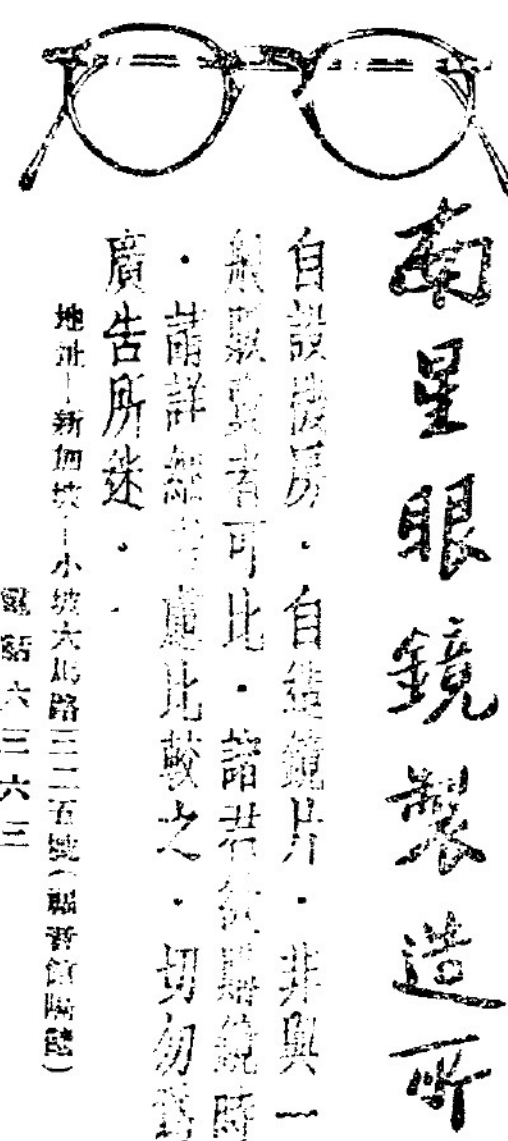 南星眼鏡製造所
自設機房・自造鏡片・非與一
般販賣者可比・諸君欲購鏡時
・請詳細考慮比較之・切勿爲
廣告所迷・
地址—新加坡—小坡大馬路三二五號(福音館隔壁)
電話六三六三